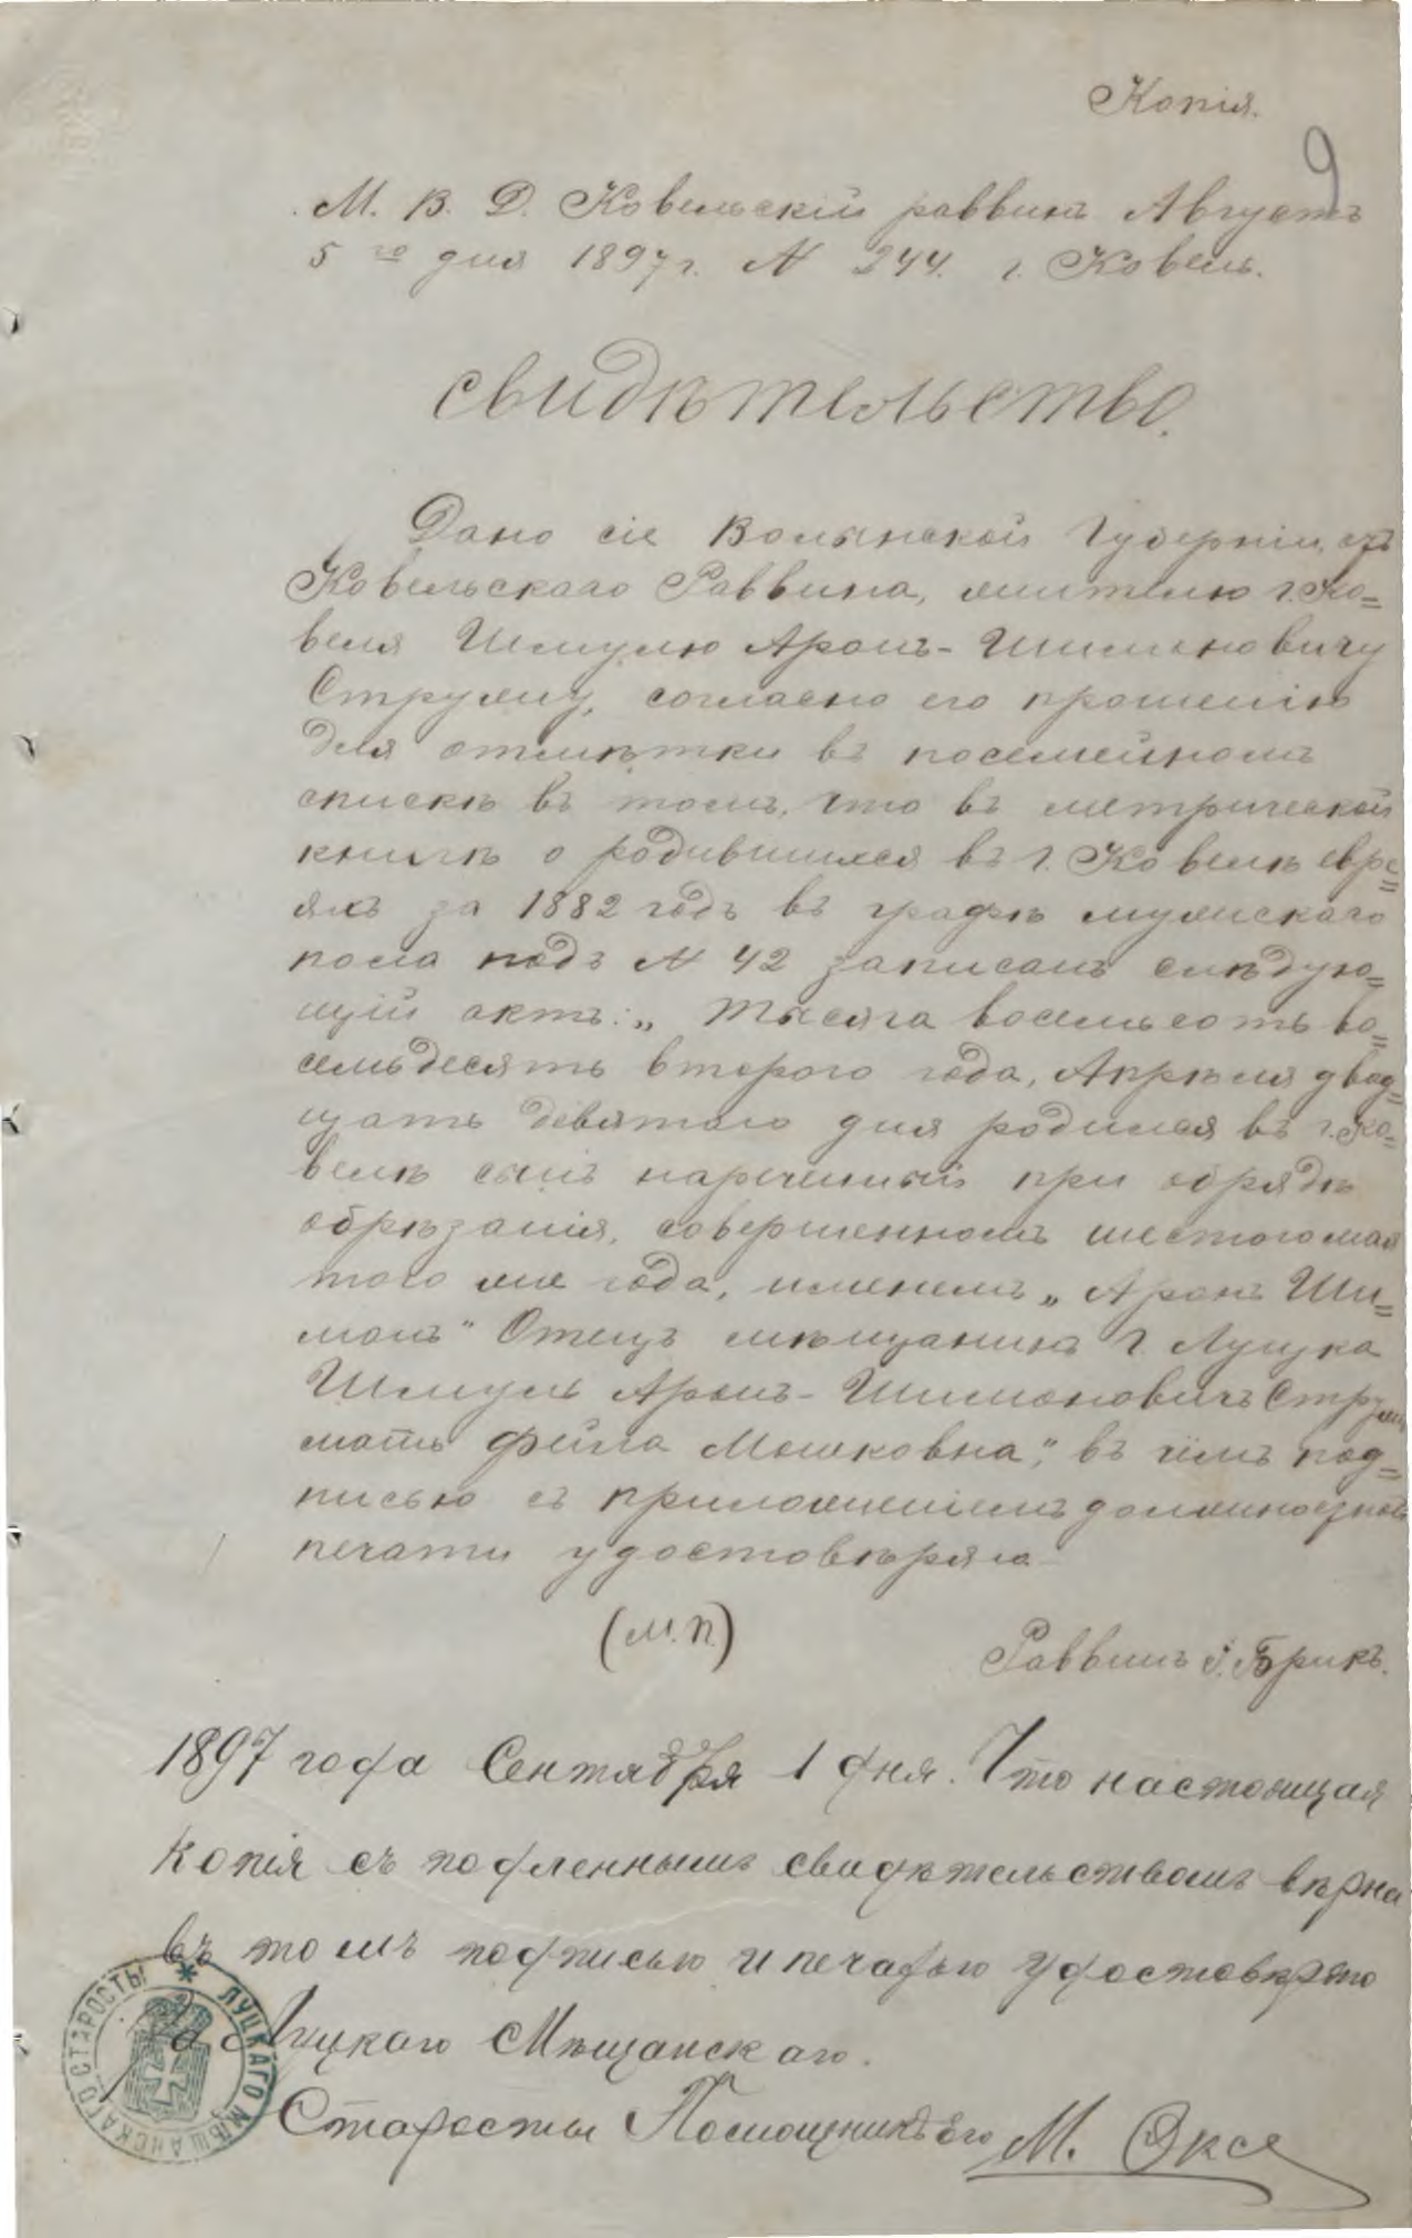 Копія.
9
М. В. Д. Ковельскій раввинъ Августъ
5го дня 1897 г. N 244. г. Ковель.
Свидѣтельство.
Дано сіе Волынской Губерніи, отъ
Ковельскаго Раввина, жителю г. Ко=
веля Шмулю Аронъ-Шимоновичу
Стружу, согласно его прошенію
для отмѣтки въ посемейномъ
спискѣ въ томъ, что въ метрической
книгѣ о родившихся въ г. Ковелѣ евре=
яхъ за 1882 годъ въ графѣ мужскаго
пола подъ N 42 записанъ слѣдую=
щій актъ: „Тысяча восемьсотъ во=
семьдесять второго года, Апрѣля двад=
цать девятого дня родился въ г. Ко=
велѣ сынъ нареченный при обрядѣ
обрѣзанія, совершенномъ шестого мая
того же года, именемъ „Аронъ Ши=
монъ" Отецъ мѣщанинъ г. Луцка
Шмуль Аронъ-Шимоновичъ Стружъ
мать Фейга Мошковна", въ чемъ под=
писью съ приложеніемъ должностной
печати удостовѣряю
(М.П.)
Раввинъ І. Брикъ.
1897 года Сентября 1 дня. Что настоящая
копія съ подленнымъ свидѣтельствомъ вѣрна
въ томъ подписью и печатью удостовѣряю
За Луцкаго Мѣщанскаго.
Старосты Помощникъ его М. Оксе
ЛУЦКАГО МѢЩАНСКАГО СТАРОСТЫ